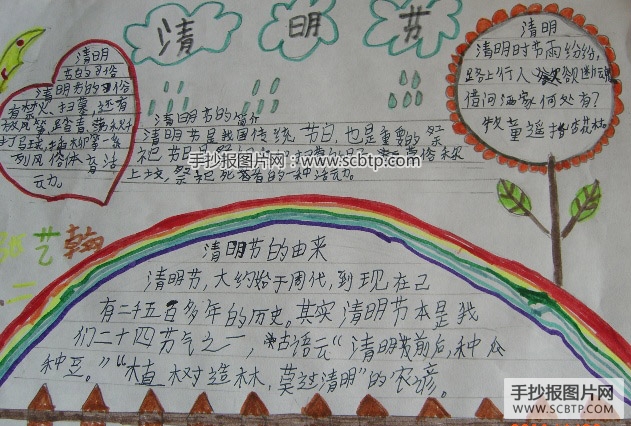 清明节
清明
节的习俗
清明节的习俗
有禁火、扫墓，还有
放风筝、踏青、荡秋千
打马球、插柳等一系
列风俗体育活
动。
清明节的简介
清明节是我国传统节日，也是重要的祭
祀节日是
上坟，祭祀死者的一种活动。
手抄报图片网：www.scbtp.com
清明
清明时节雨纷纷，
路上行人欲断魂
借问酒家何处有？
牧童遥指杏花村
艺翰
二
清明节的由来
清明节，大约始于周代，到现在已
有二千五百多年的历史。其实清明节本是我
们二十四节气之一，古语云“清明前后，种瓜
种豆。”“植树造林，莫过清明”的农谚。
手抄报图片网
WWW.SCBTP.COM